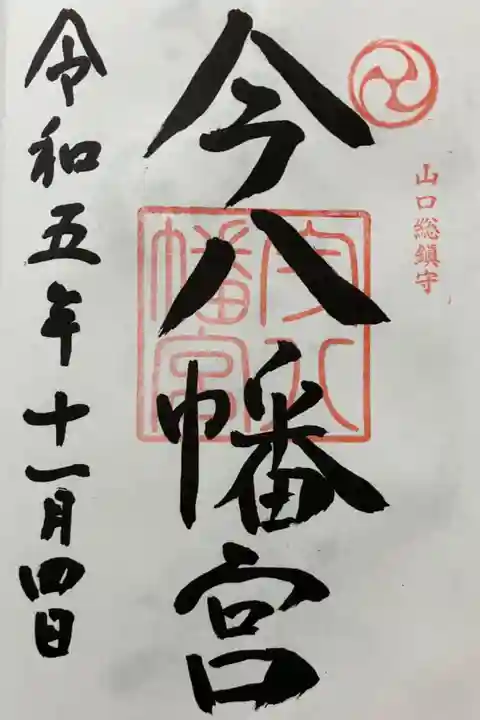 山口総鎮守
今八幡宮
今八幡宮
令和五年十一月四日